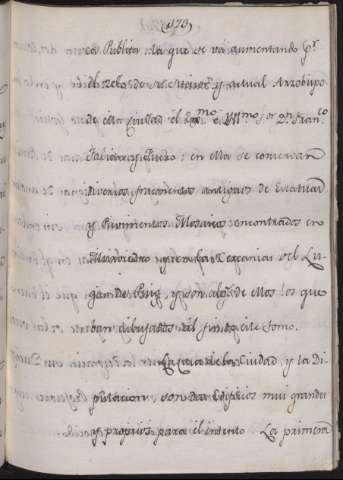 (173)
ca Publica, la que se va aumentando pr.
el zelo de su Exmo. y actual Arzobispo
de esta Ciudad el Exmo. e Yllmo. Sor. Dn. Franco
Fabian y Fuero: en ella se conservan
diversos fracmentos antiguos de Estatuas
y Pavimentos Mosaicos encontrados en
Murviedro y en las cercanias del Lu-
gar de Puig, y son algs. de ellos los que
van dibujados al fin de este tomo.
La Casa de la Ciudad, y la Di
putacion, son dos Edificios mui grandes
y propios para el intento. La primera